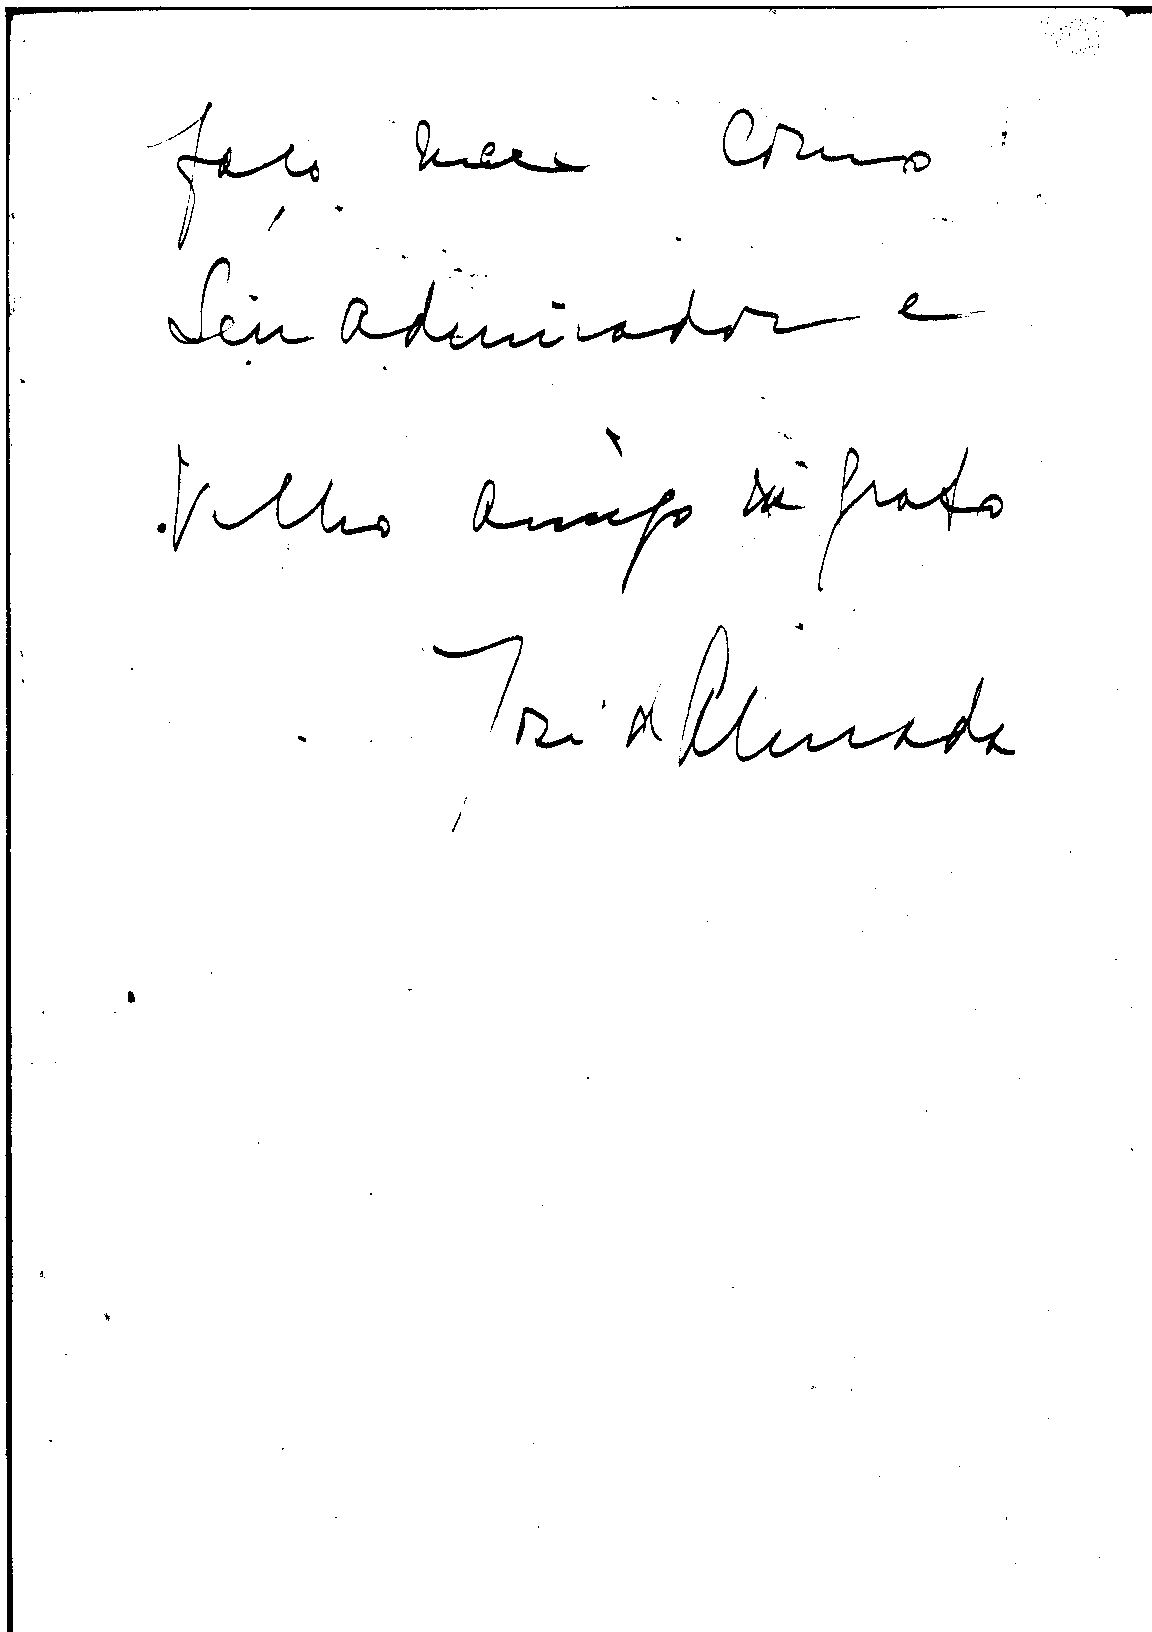 faço como
Seu admirador e
Velho amigo grato
José de Almada